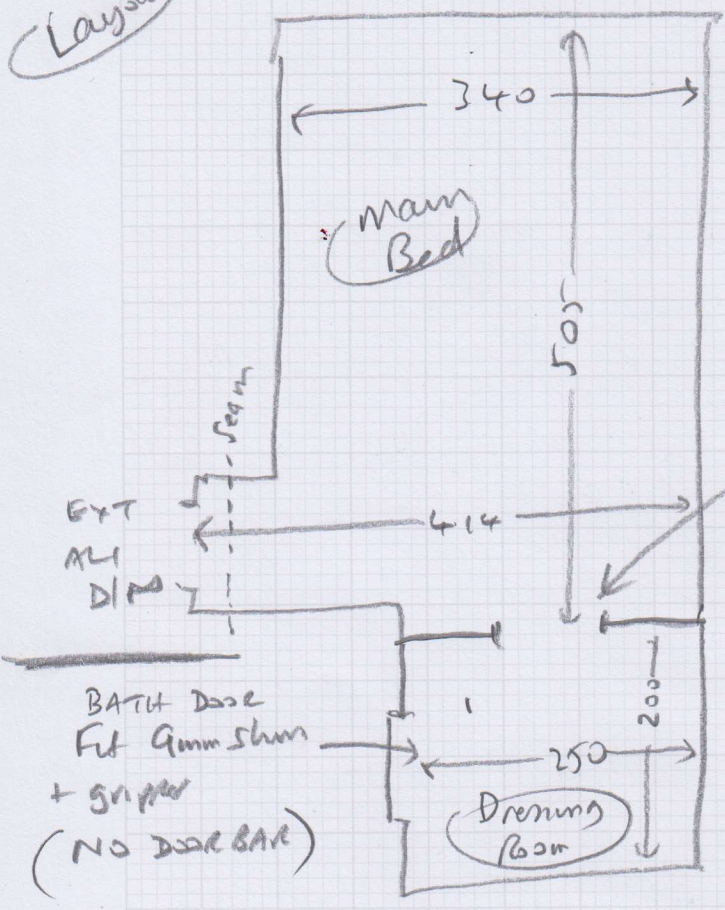 Layou
340
Main
Bed
505
Seam
EXT
ALI
414
BATH DOOR
Fit 9mm shim
+ gripper
(NO DOOR BAR)
200
250
Dressing
Room